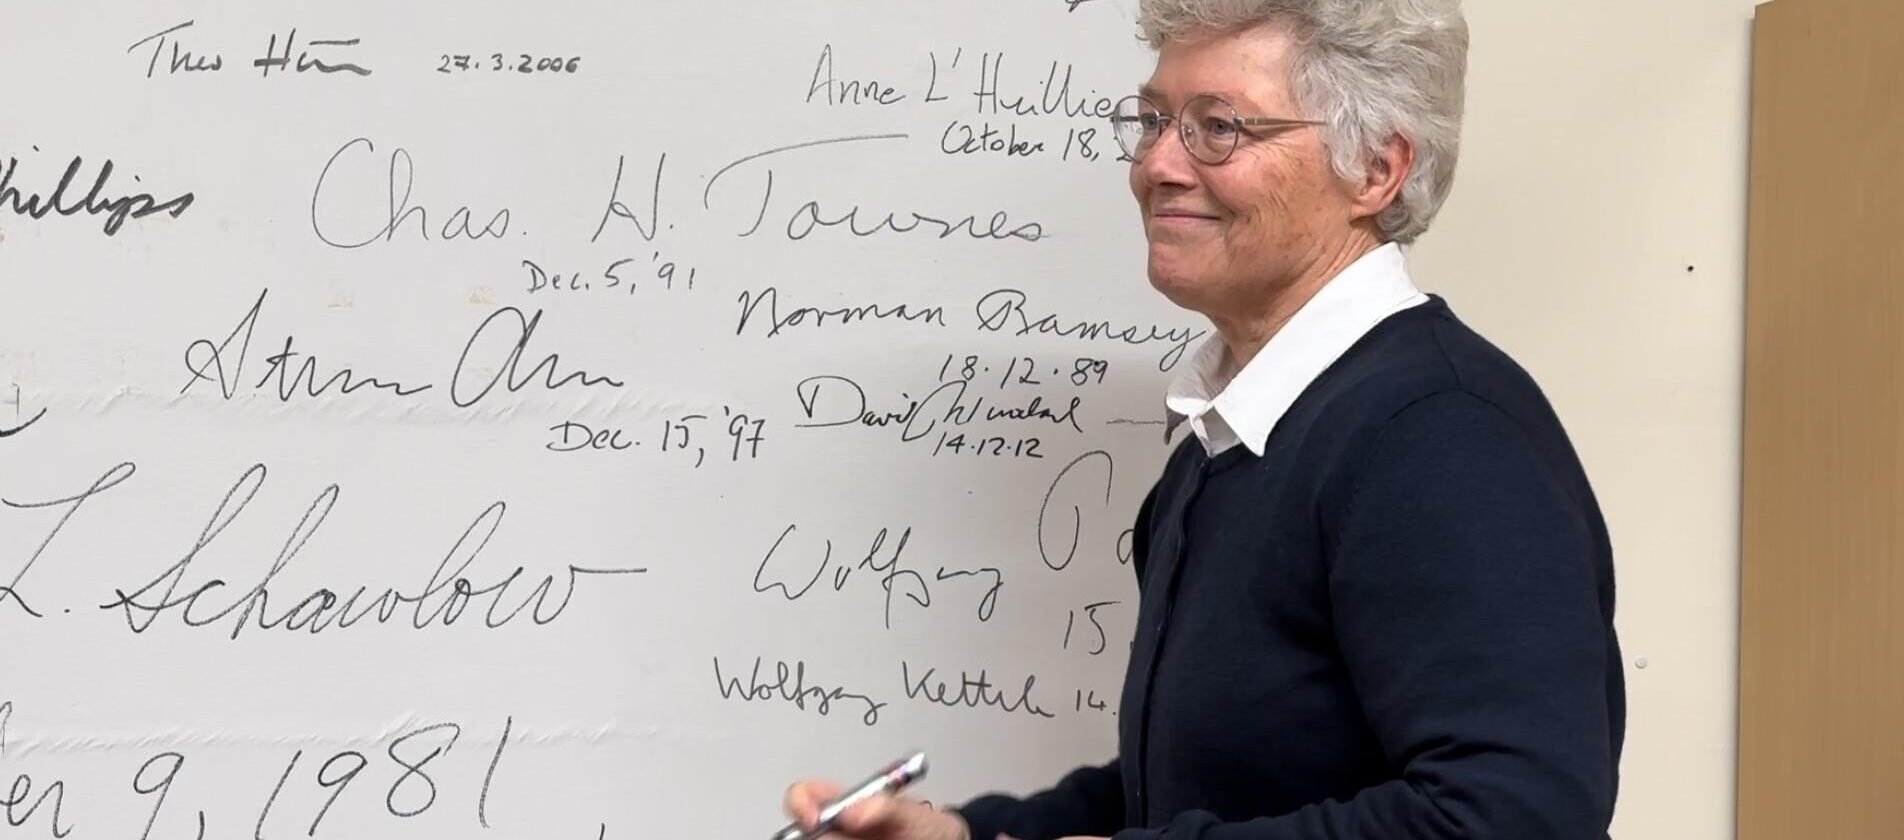 Theo Hän 27.3.2006
Anne L'Huillie
October 18, 2
hillips
Chas. H. Townes
Dec. 5, '91
Norman Ramsey
18.12.89
Steven Chu
Dec. 15, '97
David Wineland
14.12.12
L. Schawlow
Wolfgang Pa
15
Wolfgang Ketterle 14.
er 9, 1981